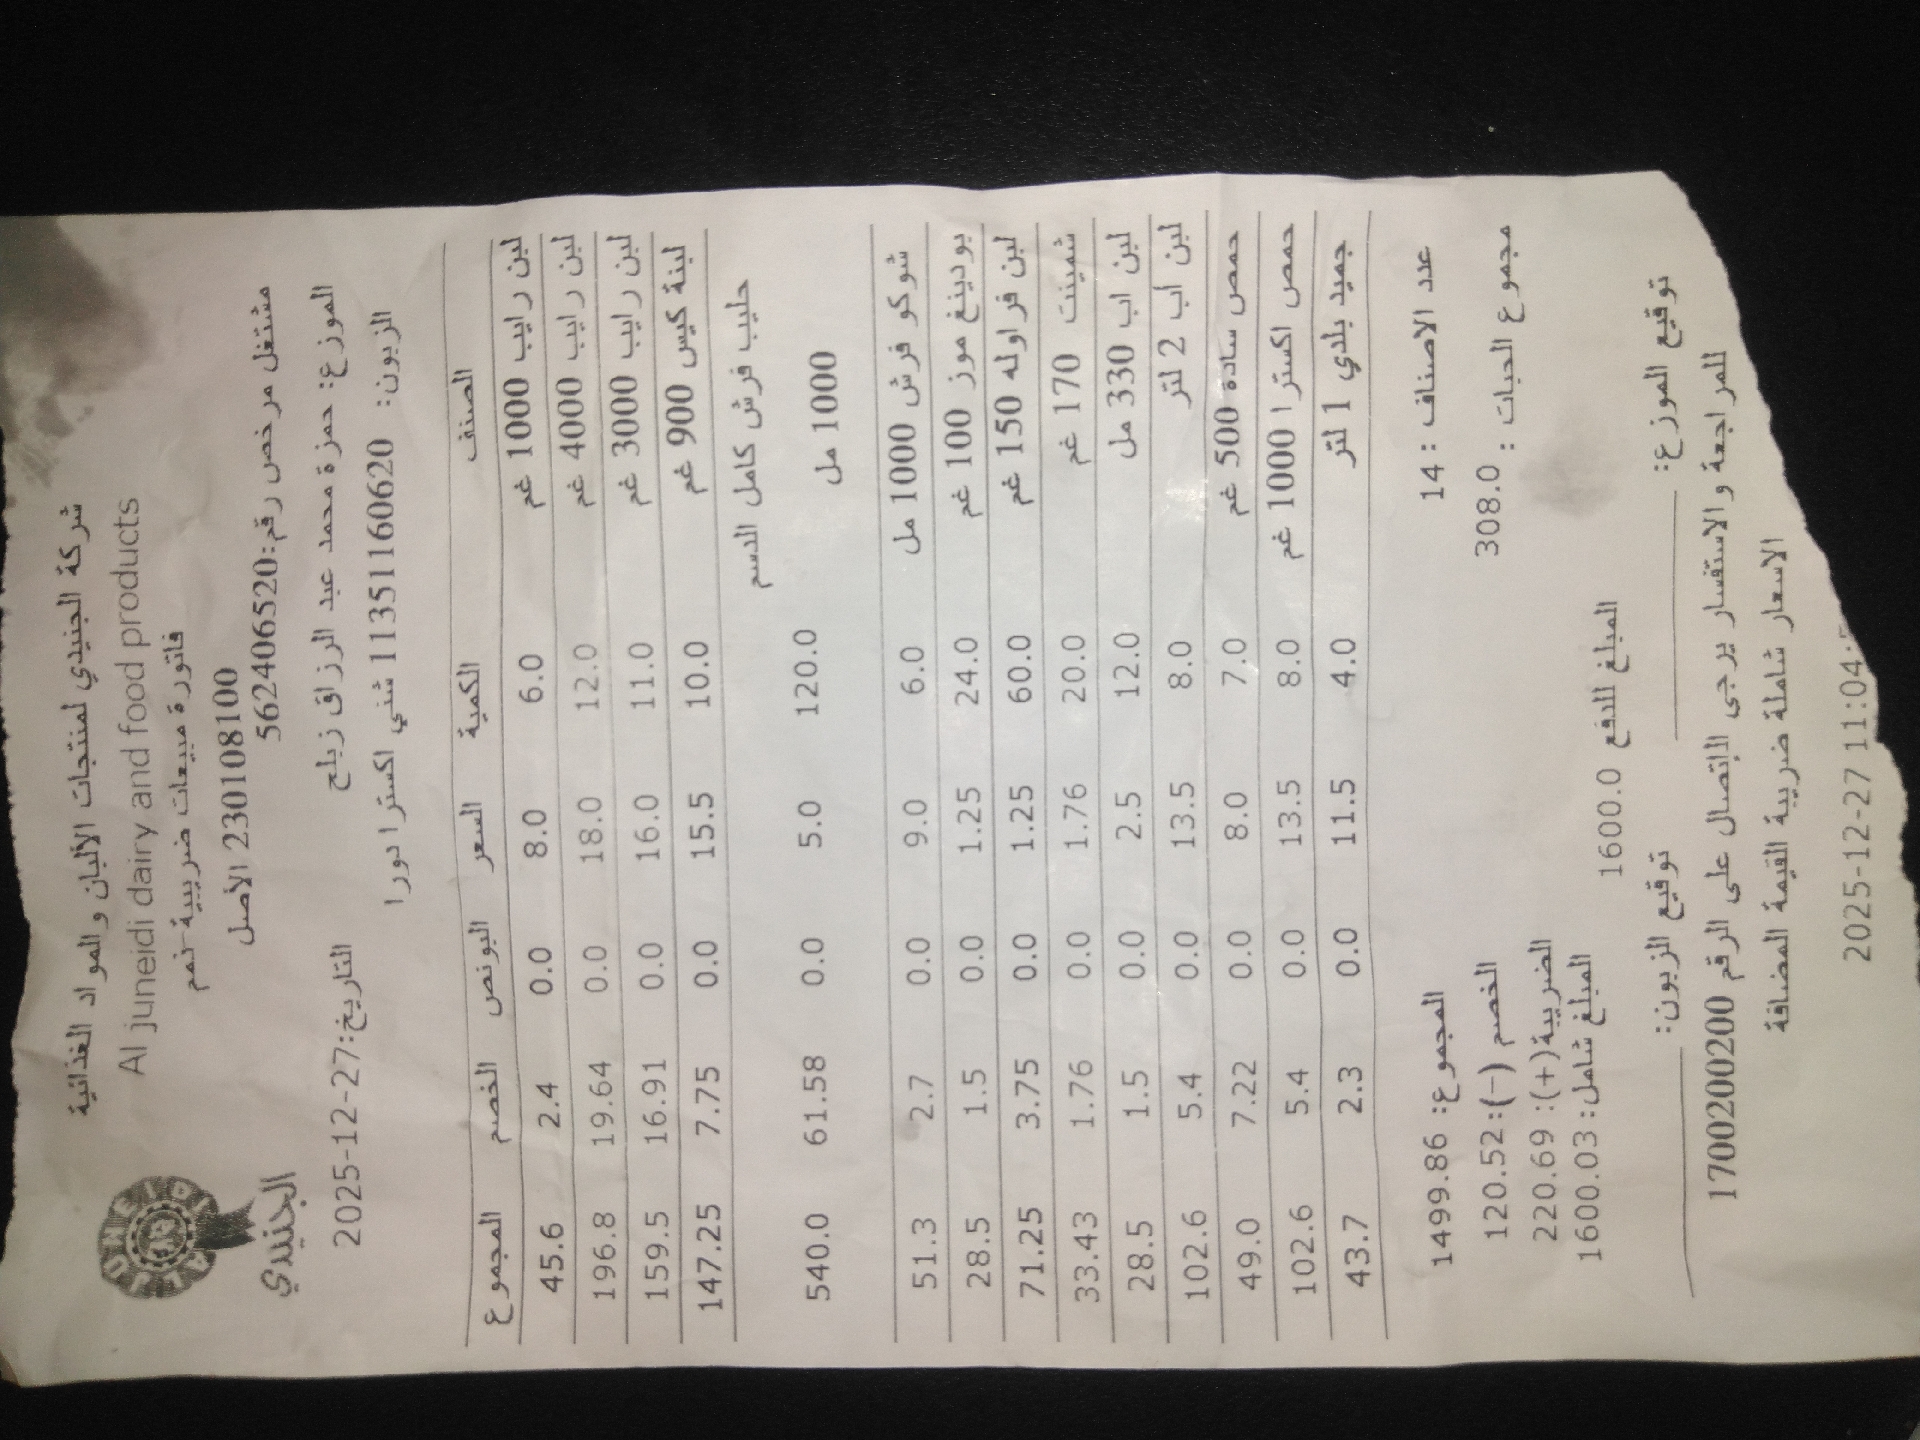 شركة الجنيدي لمنتجات الألبان والمواد الغذائية
Al juneidi dairy and food products
فاتورة مبيعات ضريبية-نمم
230108100 الأصل
مشتغل مرخص رقم:562406520
AL JUNEIDI
الجنيدي
الموزع: حمزة محمد عبد الرزاق زبلح
التاريخ:27-12-2025
الزبون: 1135116062​0 شني اكسترا دورا
الصنف الكمية السعر البونص الخصم المجموع
لبن رايب 1000 غم 6.0 8.0 0.0 2.4 45.6
لبن رايب 4000 غم 12.0 18.0 0.0 19.64 196.8
لبن رايب 3000 غم 11.0 16.0 0.0 16.91 159.5
لبنة كيس 900 غم 10.0 15.5 0.0 7.75 147.25
حليب فرش كامل الدسم
1000 مل 120.0 5.0 0.0 61.58 540.0
شوكو فرش 1000 مل 6.0 9.0 0.0 2.7 51.3
بودينغ موز 100 غم 24.0 1.25 0.0 1.5 28.5
لبن فراوله 150 غم 60.0 1.25 0.0 3.75 71.25
شمينت 170 غم 20.0 1.76 0.0 1.76 33.43
لبن اب 330 مل 12.0 2.5 0.0 1.5 28.5
لبن اب 2 لتر 8.0 13.5 0.0 5.4 102.6
حمص سادة 500 غم 7.0 8.0 0.0 7.22 49.0
حمص اكسترا 1000 غم 8.0 13.5 0.0 5.4 102.6
جميد بلدي 1 لتر 4.0 11.5 0.0 2.3 43.7
عدد الاصناف : 14 المجموع: 1499.86
مجموع الحبات : 308.0 الخصم (-): 120.52
الضريبة(+): 220.69
المبلغ للدفع 1600.0 المبلغ شامل: 1600.03
توقيع الموزع: توقيع الزبون:
للمراجعة والاستفسار يرجى الإتصال على الرقم 1700200200
الاسعار شاملة ضريبة القيمة المضافة
2025-12-27 11:04: